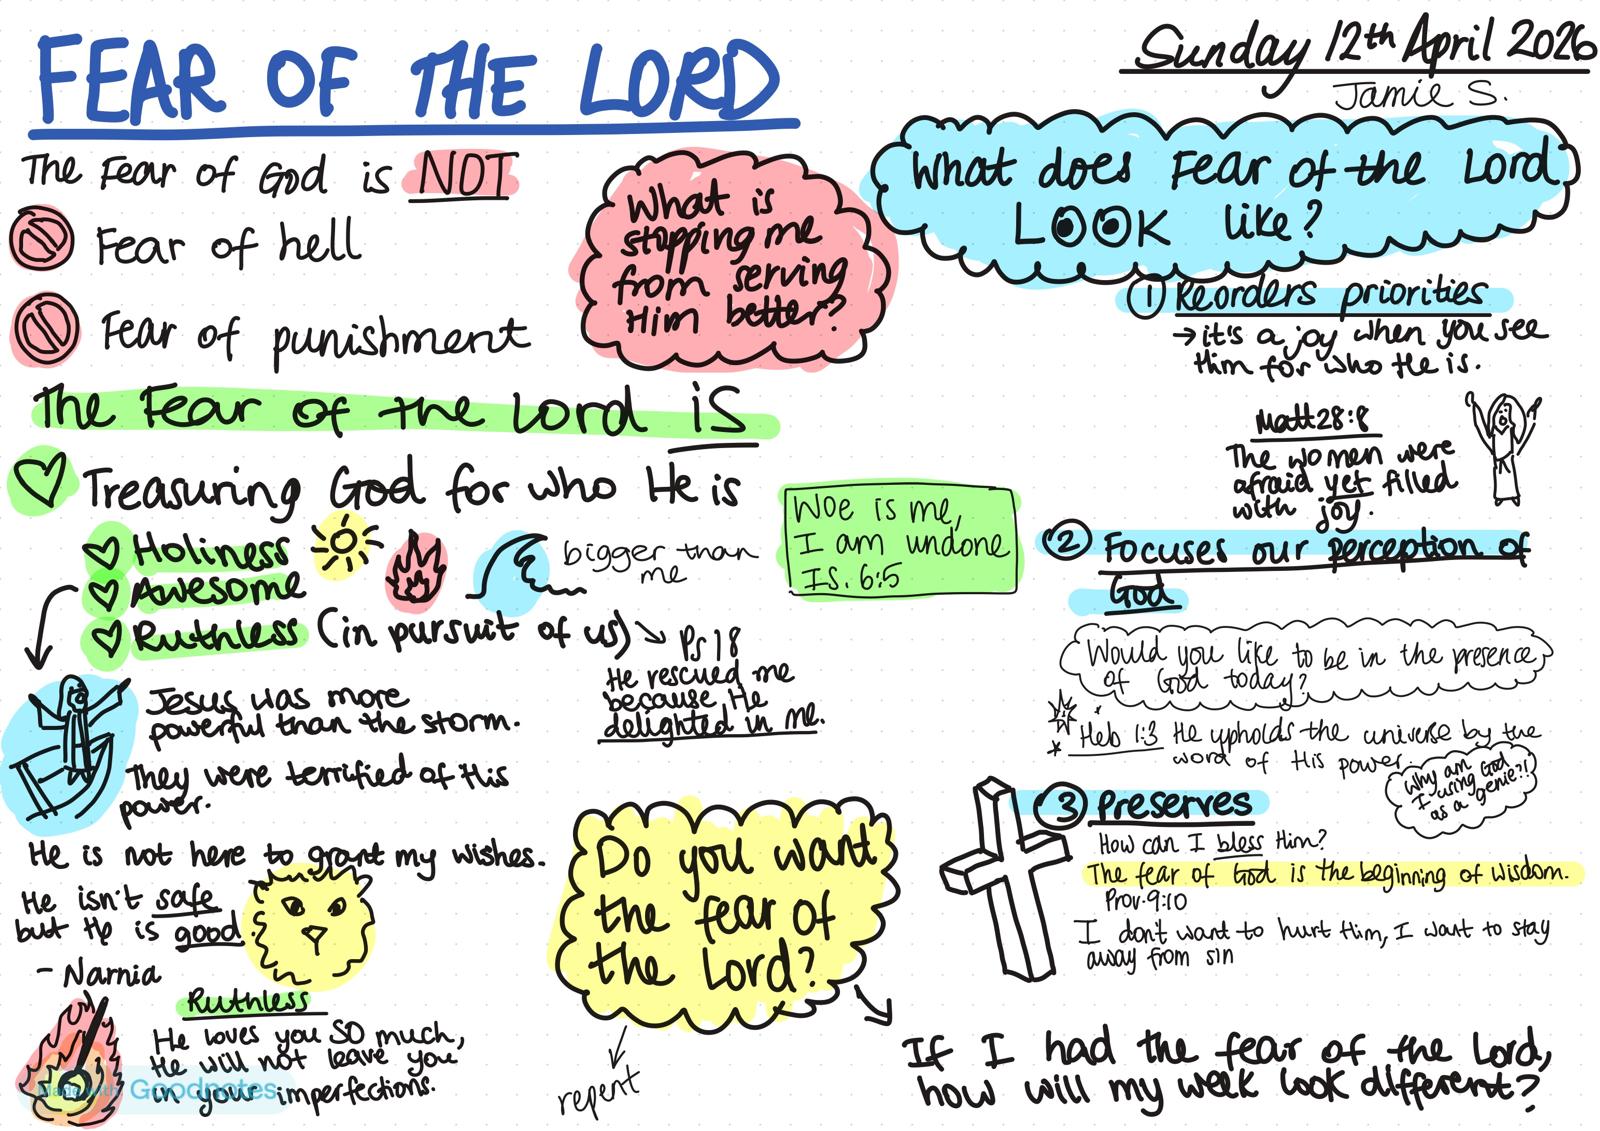 FEAR OF THE LORD
Sunday 12th April 2026
Jamie S.
The Fear of God is NOT
Fear of hell
Fear of punishment
What is
stopping me
from serving
Him better?
The Fear of the Lord is
Treasuring God for who He is
Holiness
Awesome
bigger than
me
Ruthless (in pursuit of us)
Ps 18
He rescued me
because He
delighted in me.
Woe is me,
I am undone
Is. 6:5
Jesus was more
powerful than the storm.
They were terrified of His
power.
He is not here to grant my wishes.
He isn't safe
but He is good.
- Narnia
Ruthless
He loves you SO much,
He will not leave you
in your imperfections.
Made with Goodnotes
Do you want
the fear of
the Lord?
repent
What does Fear of the Lord
LOOK like?
1 Reorders priorities
→ it's a joy when you see
Him for who He is.
Matt 28:8
The women were
afraid yet filled
with joy.
2 Focuses our perception of
God
Would you like to be in the presence
of God today?
Heb 1:3 He upholds the universe by the
word of His power.
Why am
I using God
as a genie?!
3 Preserves
How can I bless Him?
The fear of God is the beginning of wisdom.
Prov. 9:10
I don't want to hurt Him, I want to stay
away from sin
If I had the fear of the Lord,
how will my week look different?